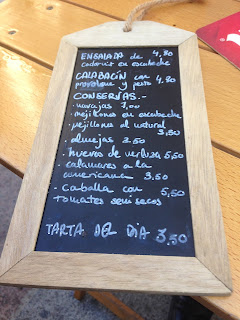 ENSALADA de 4,80
codorniz en escabeche
CALABACÍN con 4,80
provolone y pesto
CONSERVAS.-
· navajas 7,00
· mejillones en escabeche
· pejillones al natural
3,50
· almejas 3.50
· huevos de merluza 5,50
· calamares a la
americana 3,50
· caballa con 5,50
tomates semisecos
TARTA DEL DIA 3,50